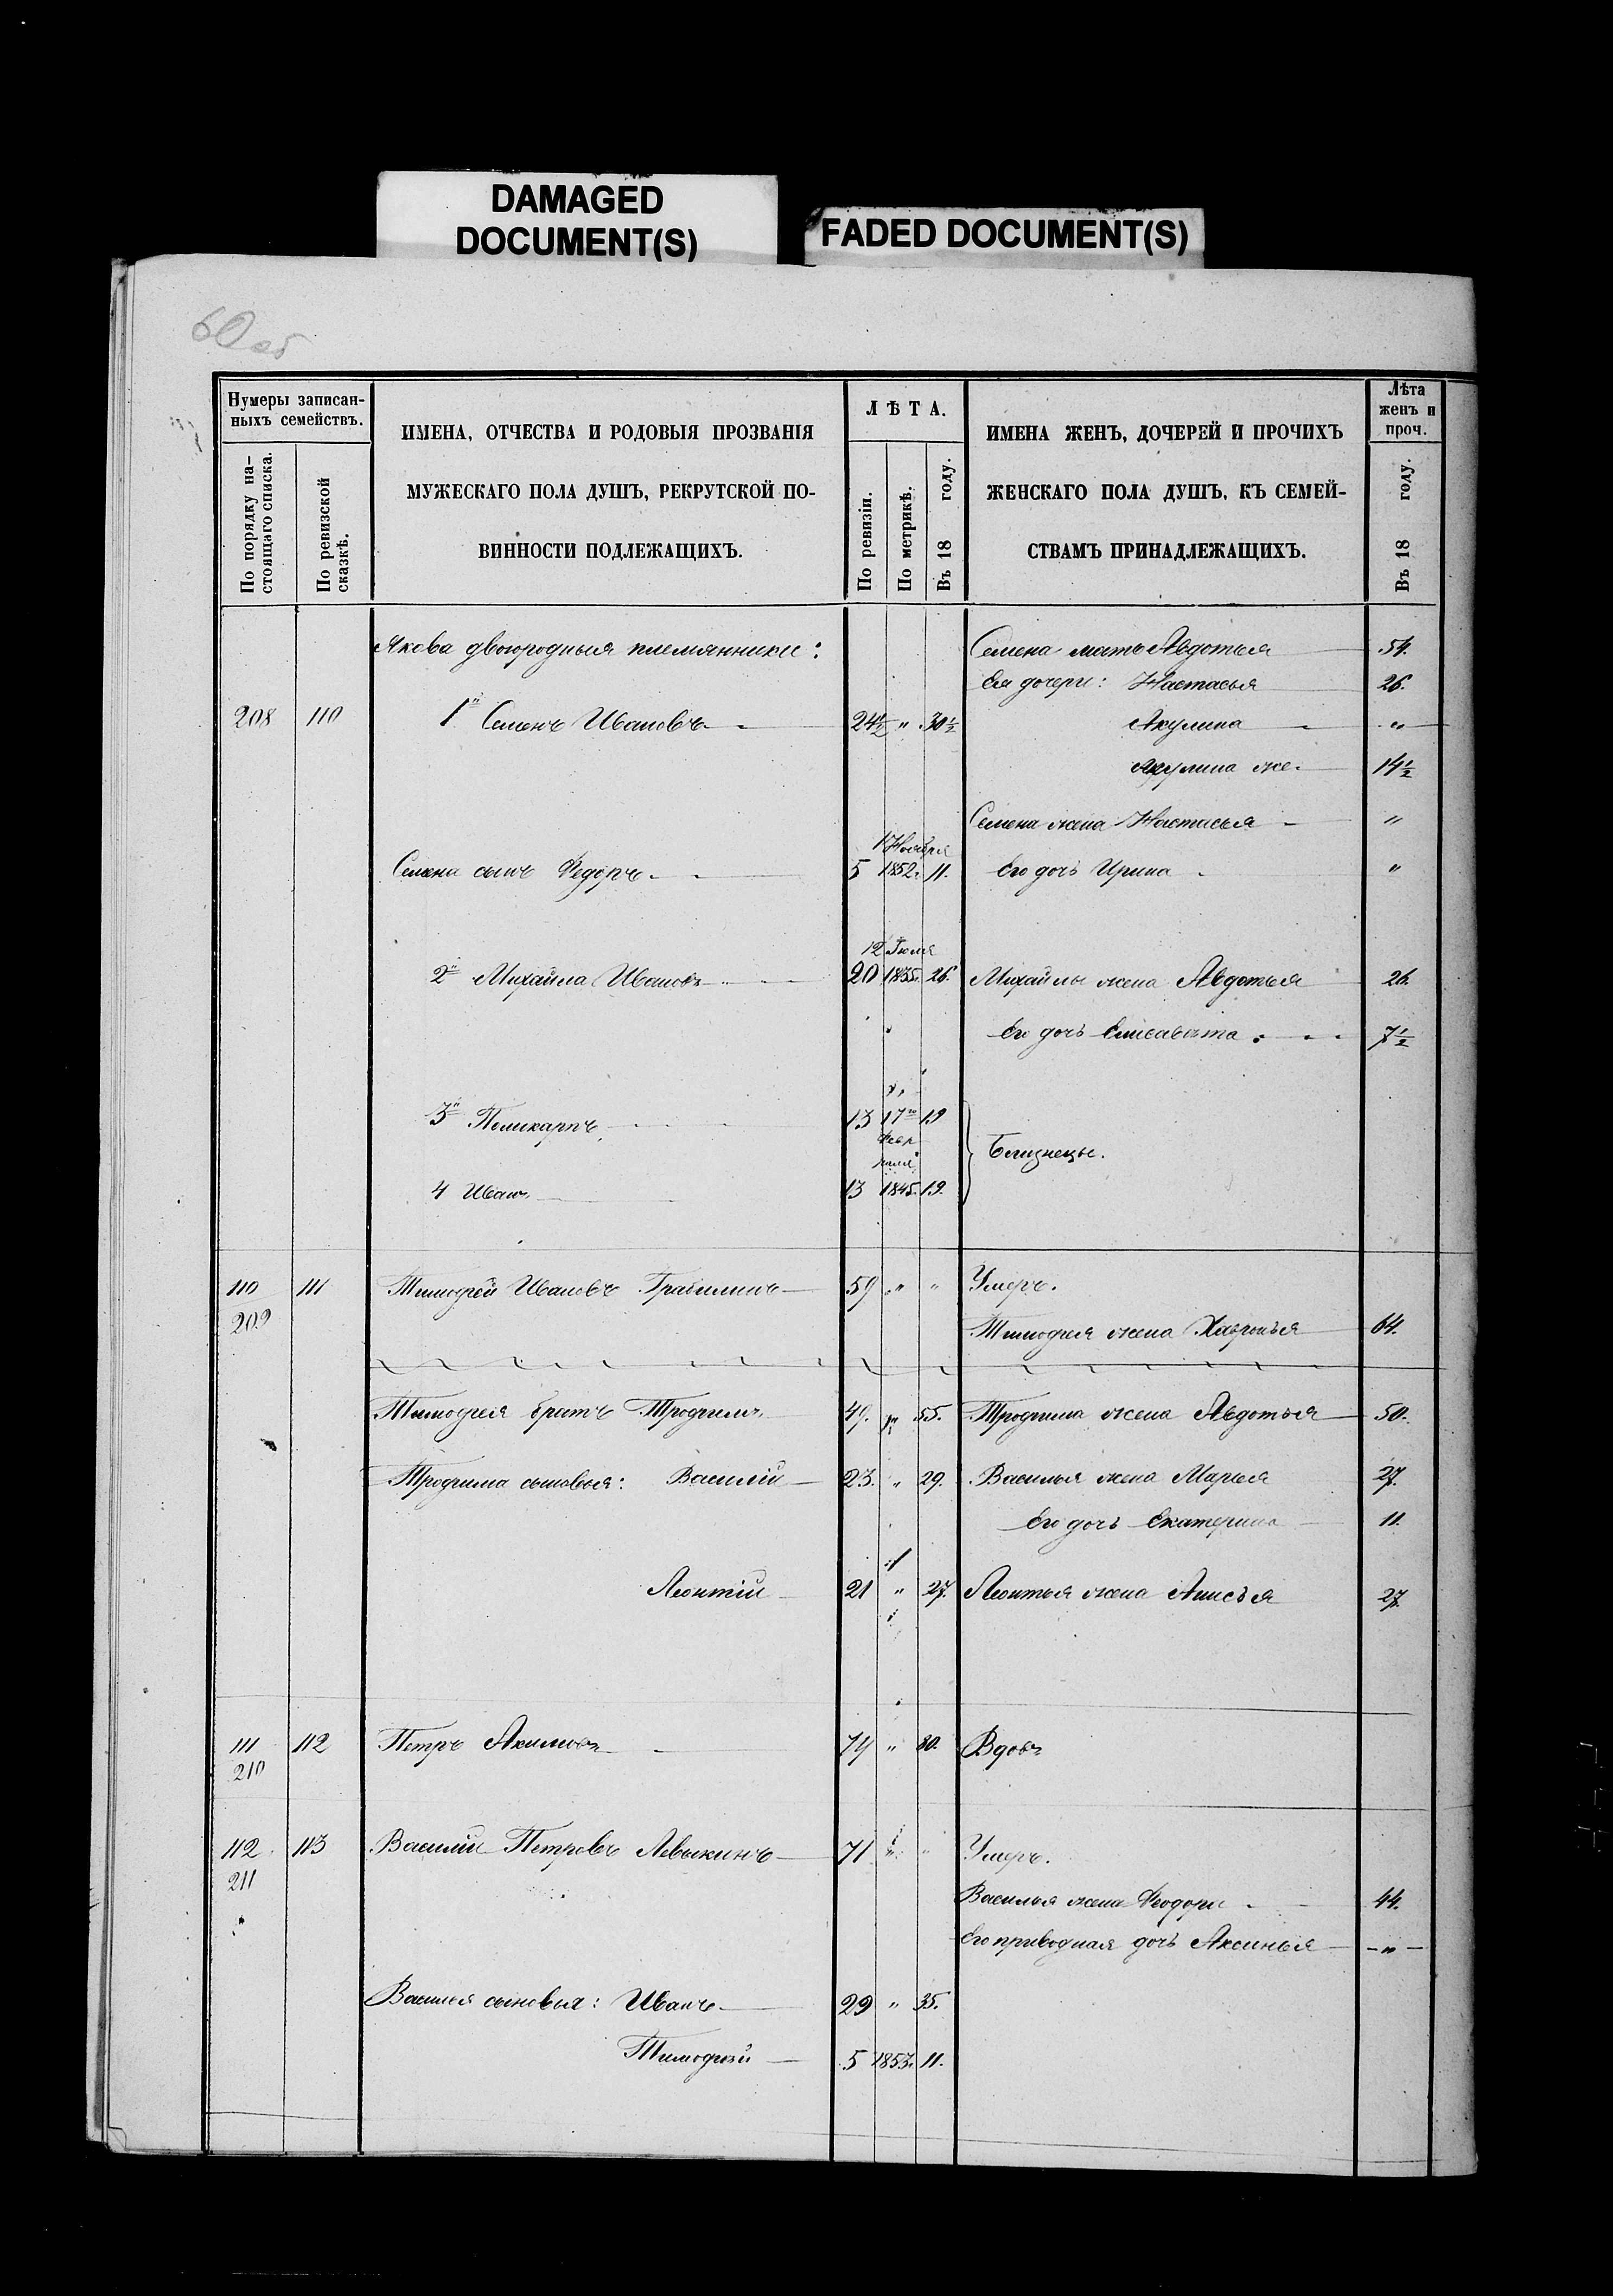 DAMAGED
DOCUMENT(S)
FADED DOCUMENT(S)
60 об
Нумеры записан-
ныхъ семействъ.
По порядку на-
стоящаго списка.
По ревизской
сказкѣ.
ИМЕНА, ОТЧЕСТВА И РОДОВЫЯ ПРОЗВАНІЯ
МУЖЕСКАГО ПОЛА ДУШЪ, РЕКРУТСКОЙ ПО-
ВИННОСТИ ПОДЛЕЖАЩИХЪ.
ЛѢТА.
По ревизіи.
По метрикѣ.
Въ 18 году.
ИМЕНА ЖЕНЪ, ДОЧЕРЕЙ И ПРОЧИХЪ
ЖЕНСКАГО ПОЛА ДУШЪ, КЪ СЕМЕЙ-
СТВАМЪ ПРИНАДЛЕЖАЩИХЪ.
Лѣта
женъ и
проч.
Въ 18 году.
Якова двоюродныя племянники: Семена мать Авдотья 54.
Ея дочери: Настасья 26.
208 110 1й Семенъ Ивановъ 24½ " 30½ Акулина "
Акулина же 14½
Семена жена Настасья "
1 Ноября
Семена сынъ Федоръ 5 1852. 11. Его дочь Ирина "
12 Іюля
2й Михайла Ивановъ 20 1835. 26. Михайлы жена Авдотья 26.
Его дочь Елисавета 7½
3й Поликарпъ 13 17го 19
Февраля
Близнецы.
4 Иванъ 13 1845. 19.
110 111 Тимофей Ивановъ 59 " " Умеръ.
209 Тимофея жена Хавронья 64.
Тимофея братъ Трофимъ 49. " 55. Трофима жена Авдотья 50.
Трофима сыновья: Василій 23. " 29. Василья жена Марья 27.
Его дочь Екатерина 11.
Леонтій 21 " 27. Леонтья жена Анисья 27.
111 112 Петръ Акимовъ 74 " 80. Вдовъ
210
112 113 Василій Петровъ Левыкинъ 71 " " Умеръ.
211
Василья жена Феодора 44.
Его приводная дочь Аксинья - " -
Василья сыновья: Иванъ 29 " 35.
Тимофей 5 1853. 11.